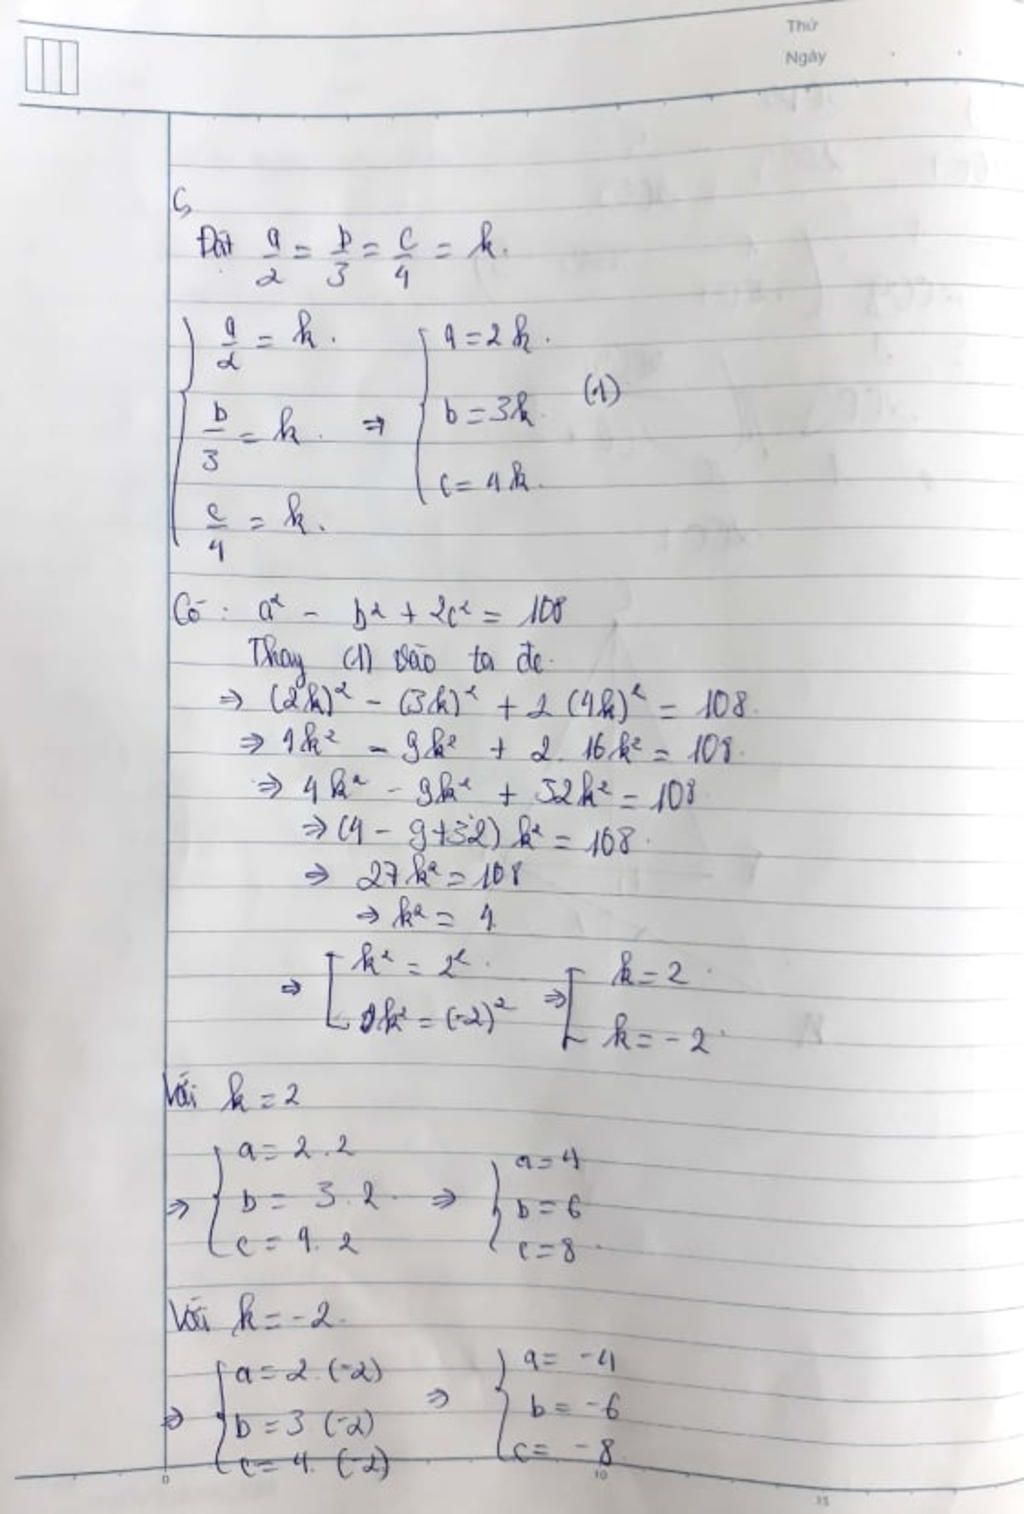 Thứ
Ngày
c,
Đặt a/2 = b/3 = c/4 = k.
{ a/2 = k. b/3 = k. c/4 = k. ⇒ { a = 2k. b = 3k. c = 4k. (1)
Có : a² - b² + 2c² = 108
Thay (1) vào ta đc.
⇒ (2k)² - (3k)² + 2 (4k)² = 108.
⇒ 4k² - 9k² + 2. 16k² = 108.
⇒ 4k² - 9k² + 32k² = 108
⇒ (4 - 9 + 32) k² = 108.
⇒ 27k² = 108
⇒ k² = 4
⇒ [ k² = 2². k² = (-2)² ⇒ [ k = 2. k = -2.
Với k = 2
⇒ { a = 2.2 b = 3.2 c = 4.2 ⇒ { a = 4 b = 6 c = 8.
Với k = -2.
⇒ { a = 2.(-2) b = 3 (-2) c = 4. (-2) ⇒ { a = -4 b = -6 c = -8
0 10
15